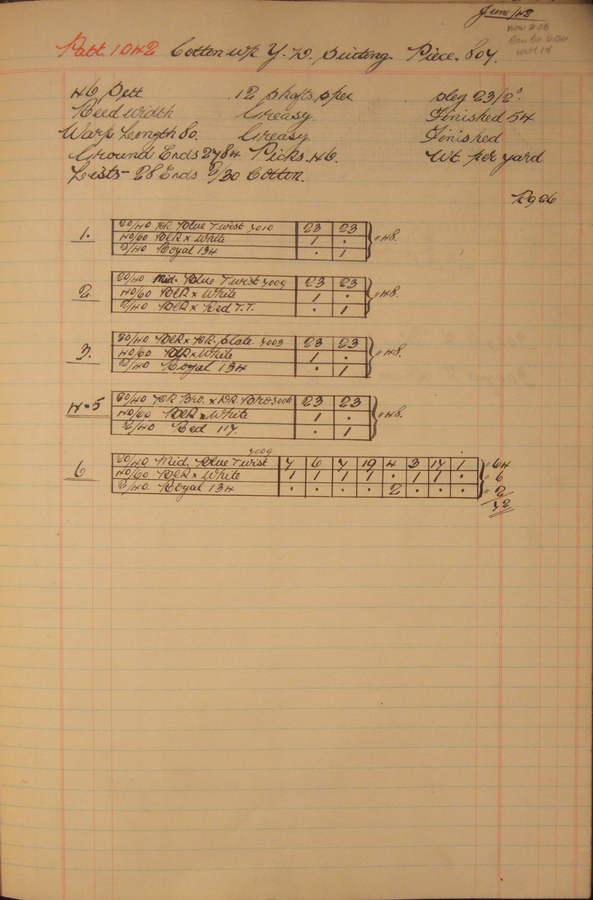 June/42
Patt. 1042 Cotton wp. Y. D. Suiting. Piece. 807.
46 Sett 12 Shafts. spec Sleg 23/2s
Reed Width Greasy. Finished 54
Warp Length 80. Greasy. Finished
Ground Ends 2784 Picks. 46. Wt. per yard
Lists- 28 Ends 2/30 Cotton.
R906
1. 20/40 Blue Twist 3010 23 23
40/60 Blk x White 1 . 48.
2/40 Royal 134 . 1
2. 20/40 Mid. Blue Twist 3009 23 23
40/60 Blk x White 1 . 48.
2/40 Blk x Red T.T. . 1
3. 20/40 Blk x Slate 3003 23 23
40/60 Blk x White 1 . 48.
2/40 Royal 134 . 1
4.5 20/40 Bro. x 23 23
40/60 Blk x White 1 . 48.
2/40 Red 117. . 1
3009
6 20/40 Mid. Blue Twist 7 6 7 19 4 3 17 1 64
40/60 Blk x White 1 1 1 1 . 1 1 . 6
2/40. Royal 134 . . . . 2 . . . 2
72